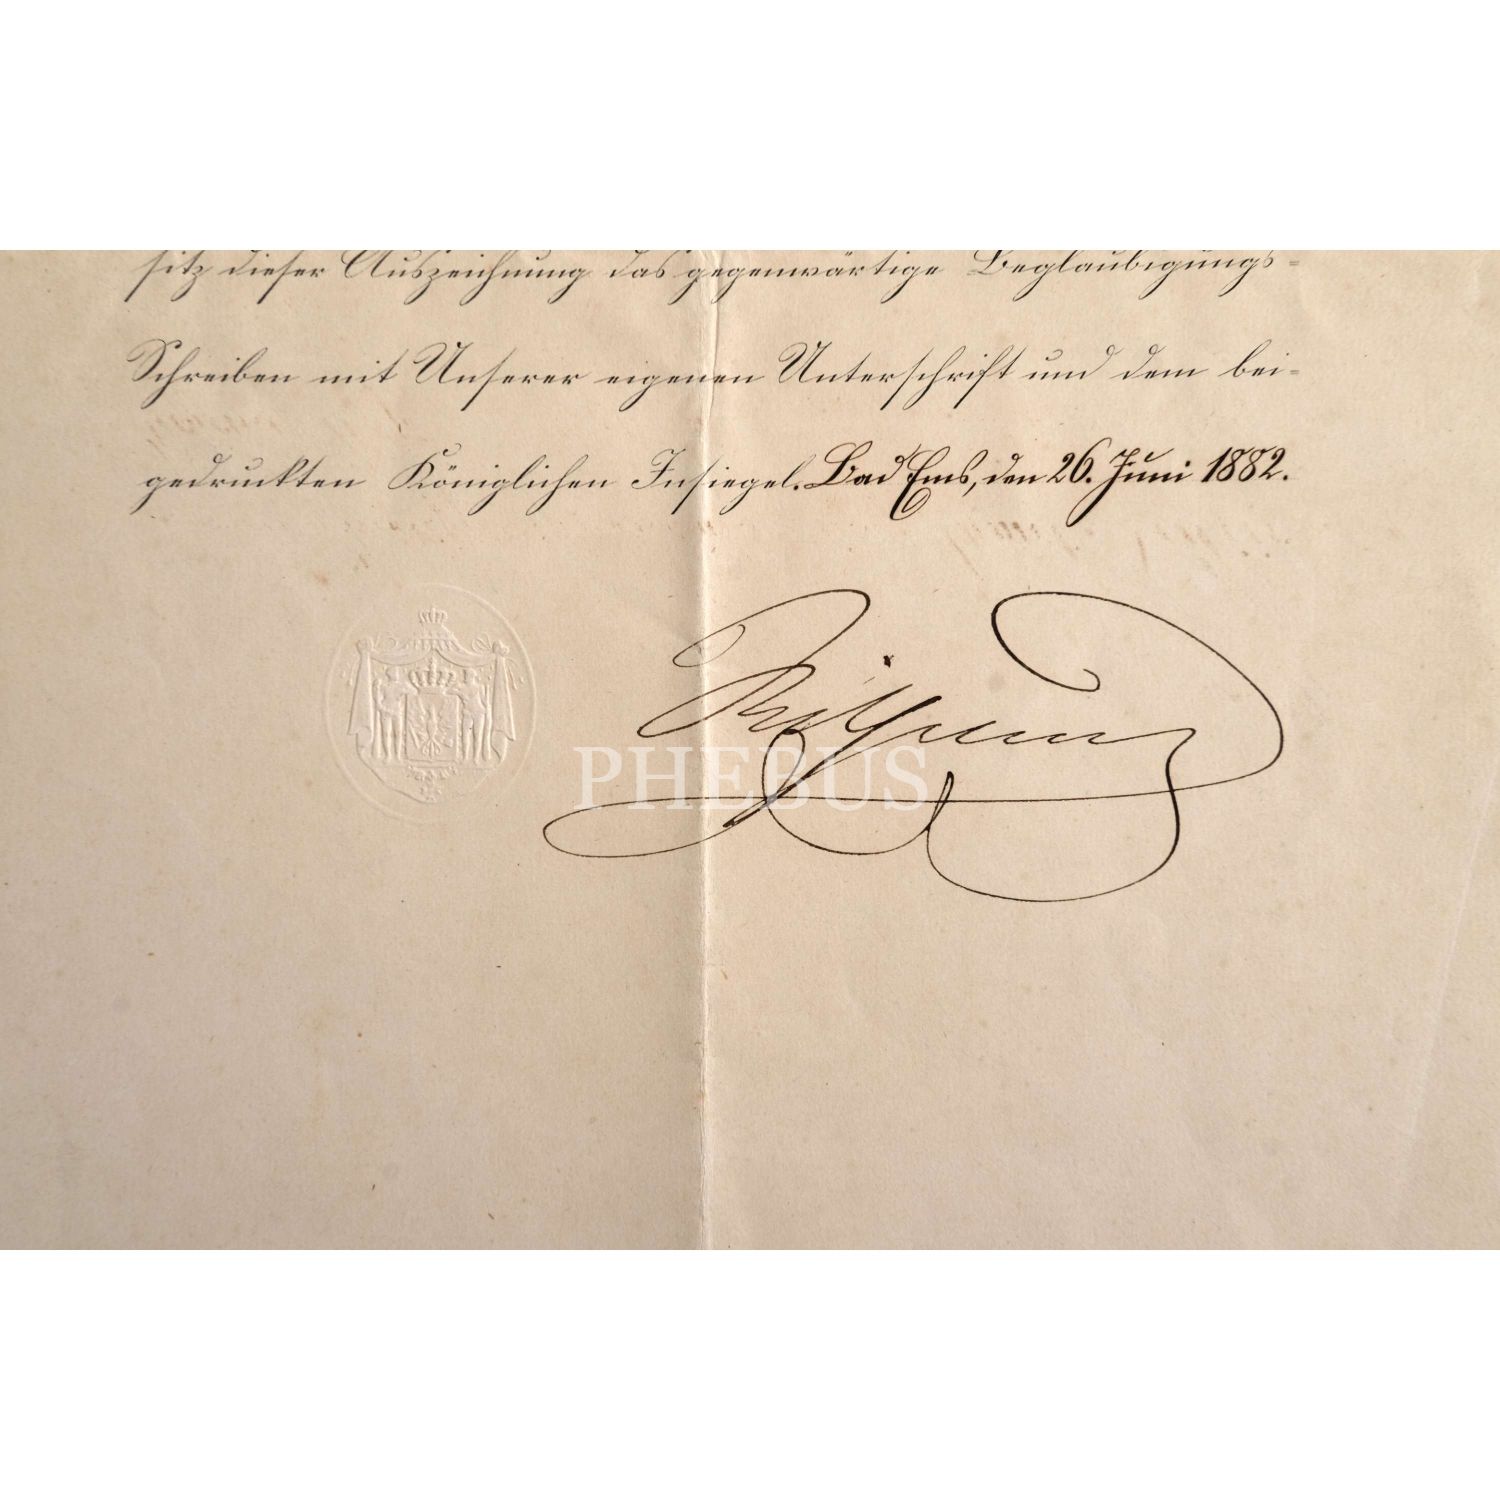 sitz dieser Auszeichnung das gegenwärtige Beglaubigungs=
Schreiben mit Unserer eigenen Unterschrift und dem bei=
gedruckten Königlichen Insiegel. Bad Ems, den 26. Juni 1882.
Wilhelm
PHEBUS